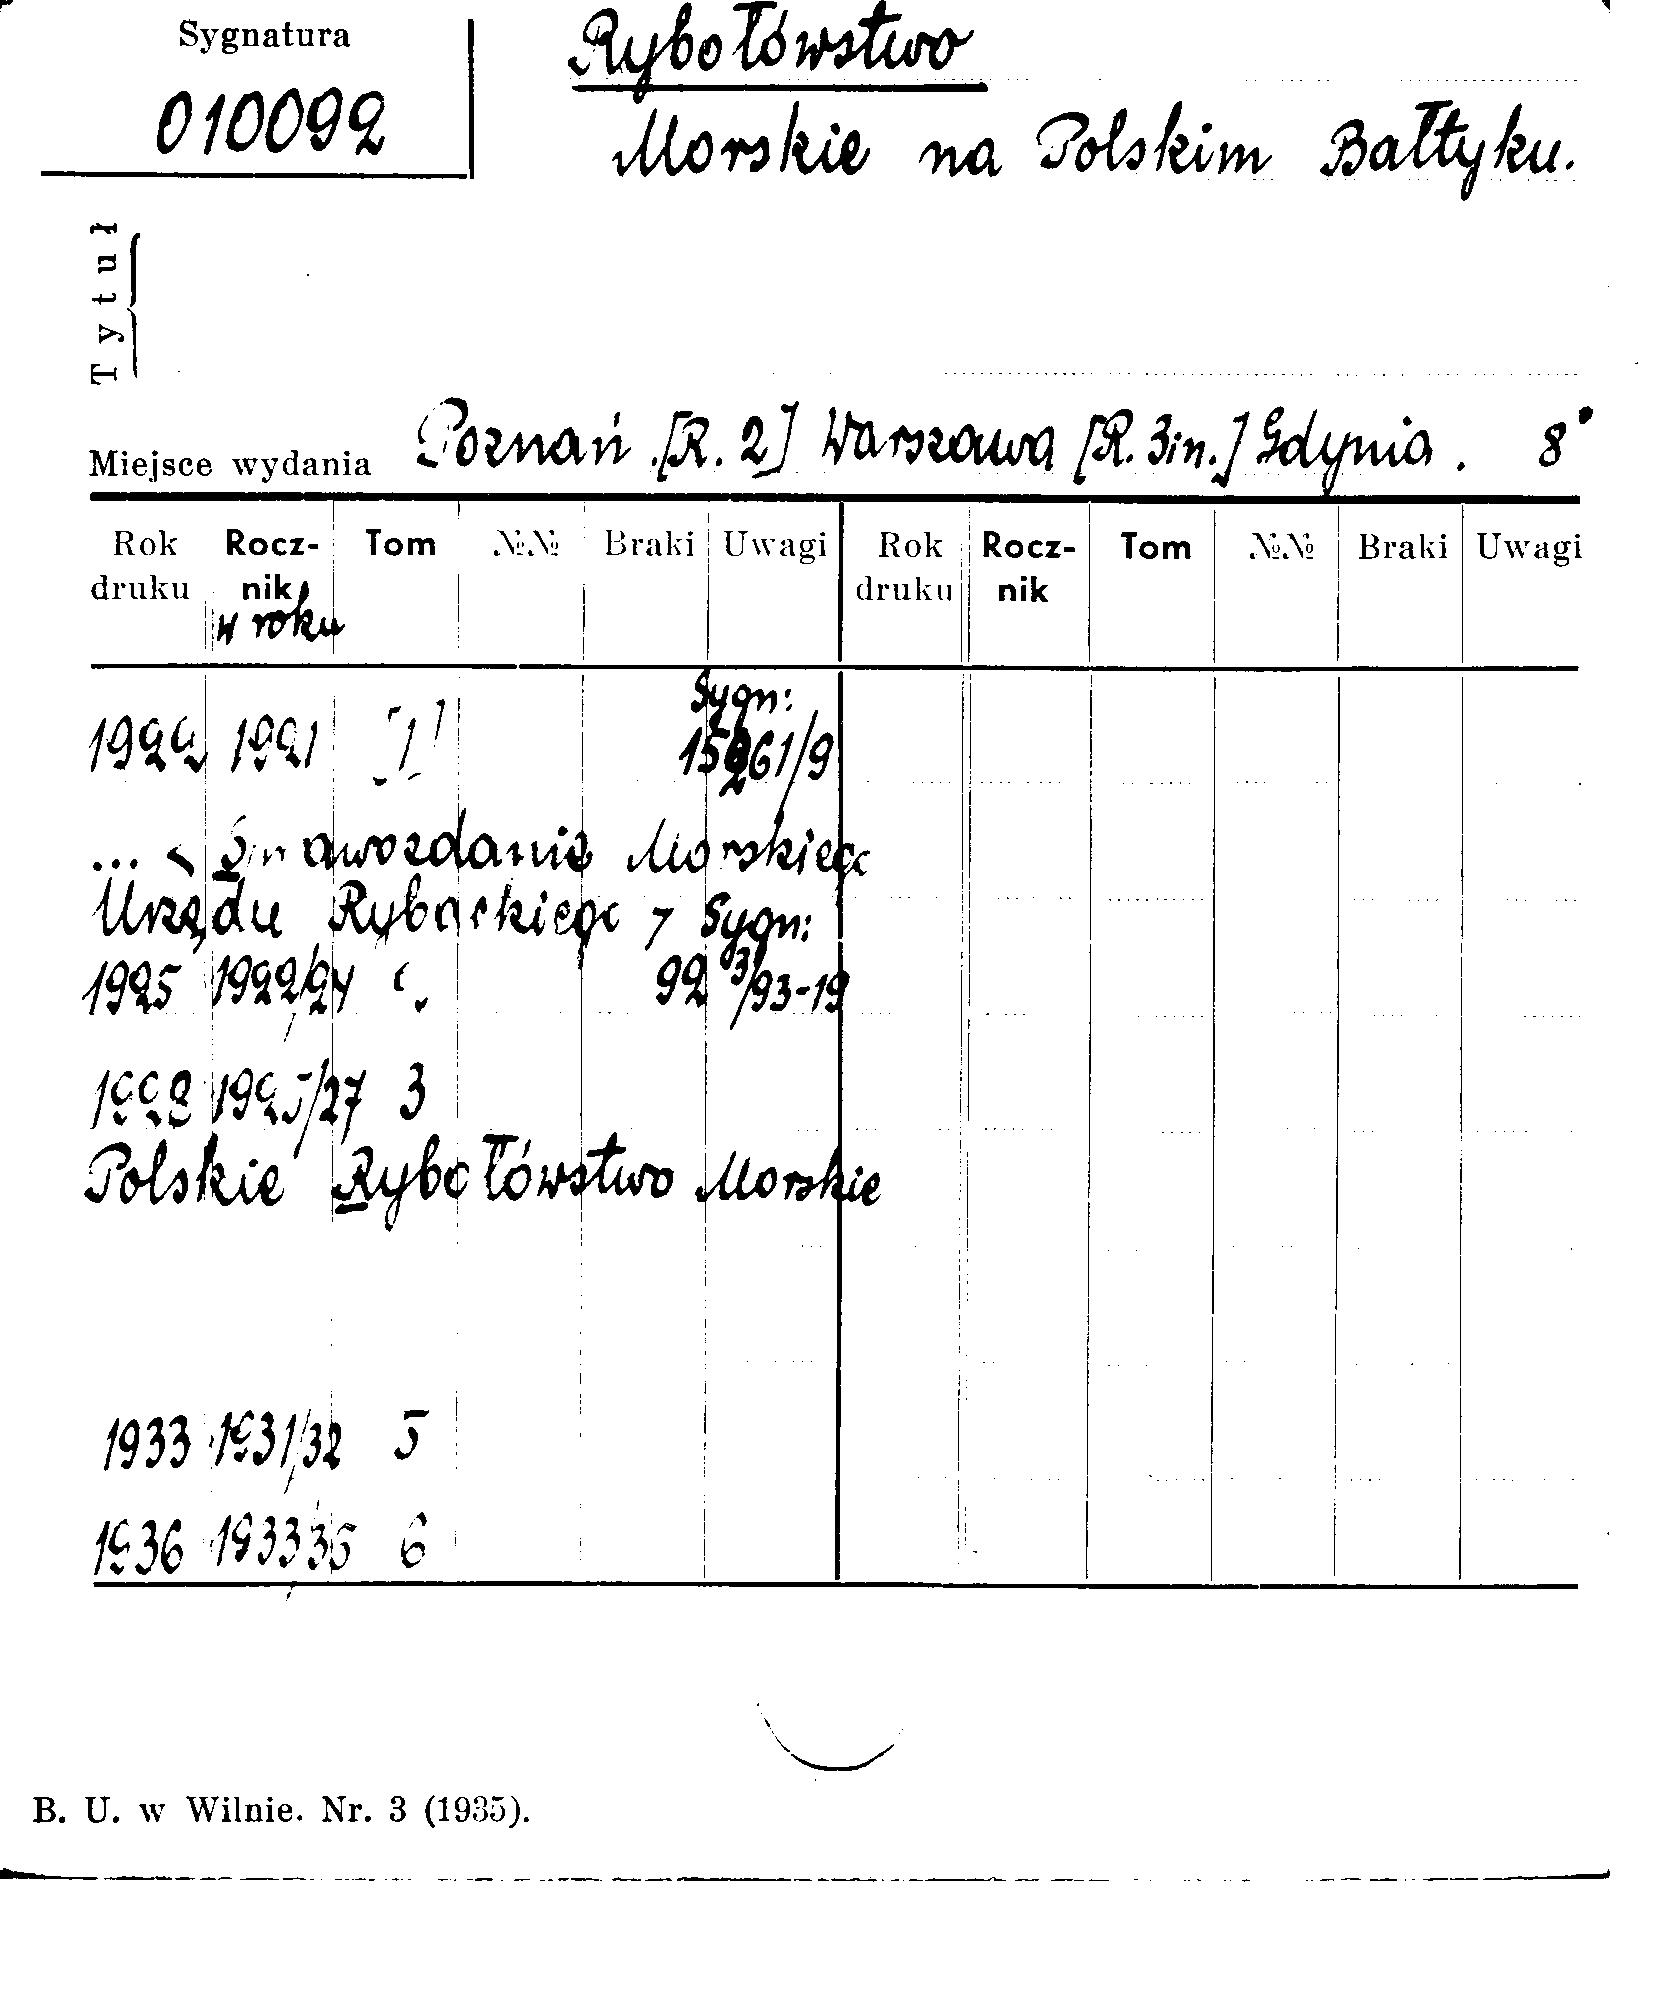 Sygnatura
010092
Rybołówstwo
Morskie na Polskim Bałtyku.
Tytuł
Miejsce wydania Poznań. [R. 2] Warszawa [R. 3in.] Gdynia. 8°
Rok druku Rocznik w roku Tom №№ Braki Uwagi Rok druku Rocznik Tom №№ Braki Uwagi
Sygn:
1922 1921 [1]
... Sprawozdanie Morskiego
Urzędu Rybackiego Sygn:
1925 1922/24
1928 1925/27 3
Polskie Rybołówstwo Morskie
1933 1931/32 5
1936 1933 35 6
B. U. w Wilnie. Nr. 3 (1935).